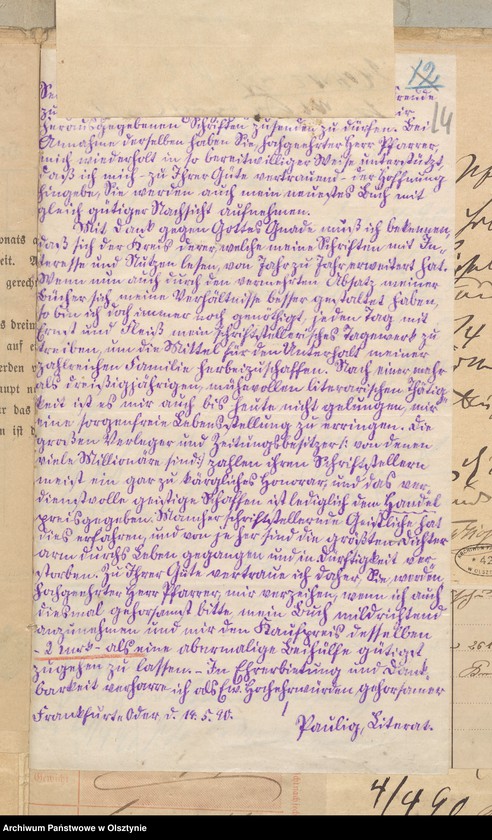 12
14
Herausgegebenen Schriften zusenden zu dürfen. Bei
Annahme derselben haben Sie, hochgeehrter Herr Pfarrer,
mich wiederholt in so bereitwilliger Weise unterstützt,
daß ich mich – zu Ihrer Güte vertrauend – der Hoffnung
hingebe, Sie werden auch mein neuestes Buch mit
gleich gütiger Nachsicht aufnehmen.
Mit Dank gegen Gottes Gnade muß ich bekennen,
daß sich der Kreis derer, welche meine Schriften mit In-
teresse und Nutzen lesen, von Jahr zu Jahr erweitert hat.
Wenn nun auch durch den vermehrten Absatz meiner
Bücher sich meine Verhältnisse besser gestaltet haben,
so bin ich doch immer noch genötigt, jeden Tag mit
Ernst und Fleiß mein schriftstellerisches Tagewerk zu
treiben, um die Mittel für den Unterhalt meiner
zahlreichen Familie herbeizuschaffen. Nach einer mehr
als dreißigjährigen, mühevollen literarischen Thätig-
keit ist es mir auch bis heute nicht gelungen, mir
eine sorgenfreie Lebensstellung zu erringen. Die
großen Verleger und Zeitungsbesitzer /: von denen
viele Millionäre sind :/ zahlen ihren Schriftstellern
meist ein gar zu kärgliches Honorar, und das ver-
dienstvolle geistige Schaffen ist lediglich dem Handel
preisgegeben. Mancher schriftstellernde Geistliche hat
dies erfahren, und von je her sind die größten Dichter
arm durchs Leben gegangen und in Dürftigkeit ver-
storben. Zu Ihrer Güte vertraue ich daher, Sie werden,
hochgeehrter Herr Pfarrer, mir verzeihen, wenn ich auch
diesmal gehorsamst bitte, mein Buch mildreichend
anzunehmen und mir den Kaufpreis desselben
– 2 Mrk – als eine abermalige Beihülfe gütigst
zugehen zu lassen. – In Ehrerbietung und Dank-
barkeit verharre ich als Ew. Hochehrwürden gehorsamer
Frankfurt a Oder, d. 14. 5. 90.
Paulig, Literat.
4/4 90
Archiwum Państwowe w Olsztynie